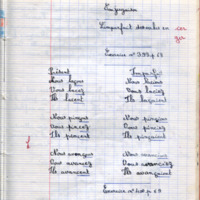 Conjugaison
L'imparfait des verbes en cer
ger
Exercice n° 399 p 69
Présent Imparfait
Nous laçons Nous lacions
Vous lacez Vous laciez
Ils lacent Ils laçaient
Nous pinçons Nous pincions
Vous pincez Vous pinciez
Ils pincent Ils pinçaient
Nous avançons Nous avancions
Vous avancez Vous avanciez
Ils avancent Ils avançaient
Exercice n° p 69